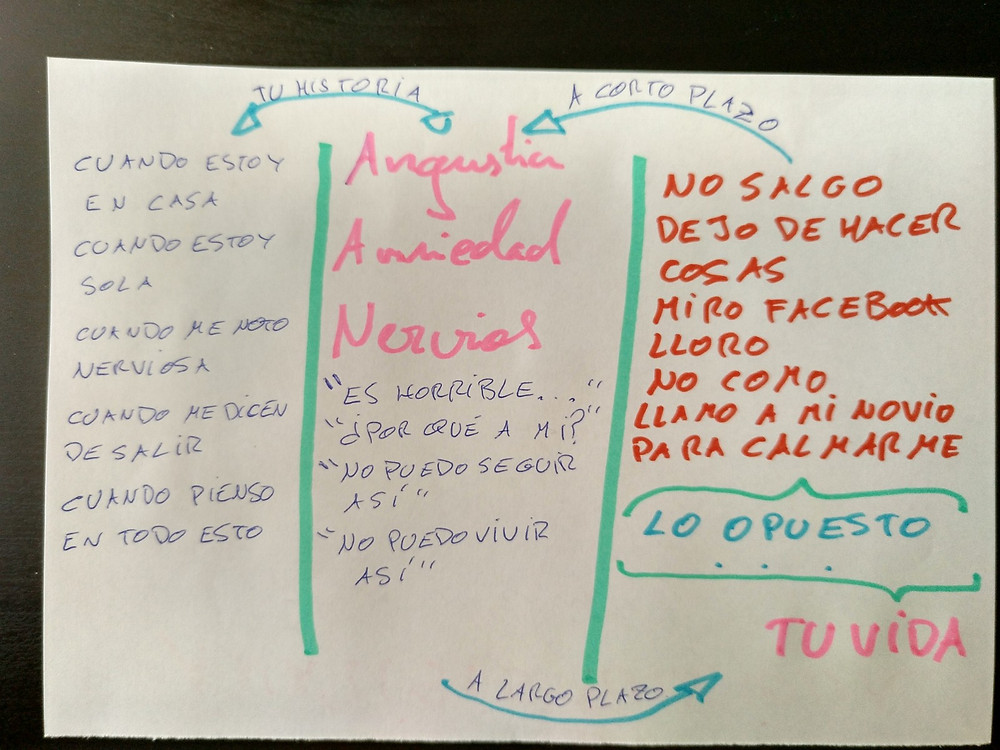 TU HISTORIA
A CORTO PLAZO
CUANDO ESTOY
EN CASA
CUANDO ESTOY
SOLA
CUANDO ME NOTO
NERVIOSA
CUANDO ME DICEN
DE SALIR
CUANDO PIENSO
EN TODO ESTO
Angustia
Ansiedad
Nervios
"ES HORRIBLE..."
"¿POR QUÉ A MÍ?"
"NO PUEDO SEGUIR
ASÍ"
"NO PUEDO VIVIR
ASÍ"
NO SALGO
DEJO DE HACER
COSAS
MIRO FACEBOOK
LLORO
NO COMO
LLAMO A MI NOVIO
PARA CALMARME
LO OPUESTO
...
TU VIDA
A LARGO PLAZO